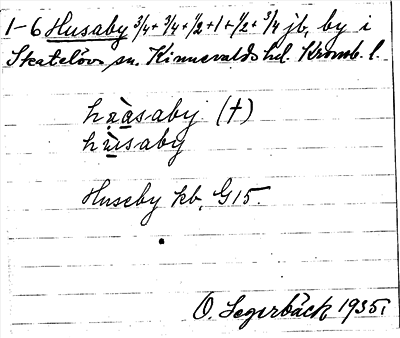 1-6 Husaby 3/4 + 3/4 + 1/2 + 1 + 1/2 + 3/4 jb, by i
Skatelövs sn. Kinnevalds hd. Kronob. l.
husaby (†)
hu̇saby
Huseby kb, G15.
O. Segerbäck 1935.